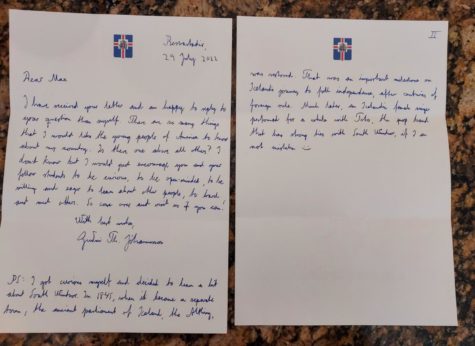 Bessastaðir,
29 July 2022
Dear Mae
I have received your letter and am happy to reply to
your question then myself. There are so many things
that I would like the young people of America to know
about my country. Is there one above all other? I
don't know but I would just encourage you and your
fellow students to be curious, to be open-minded, to be
willing and eager to learn about other people, to reach
out each other. So come over and visit us if you can!
With best wishes,
Guðni Th. Jóhannesson
PS: I got curious myself and decided to learn a bit
about South Windsor. In 1845, when it became a separate
town, the ancient parliament of Iceland, the Althing,
II
was restored. That was an important milestone on
Iceland's journey to full independence, after centuries of
foreign rule. Much later, an Icelandic female singer
performed for a while with the pop band
that has strong ties with South Windsor, if I am
not mistaken